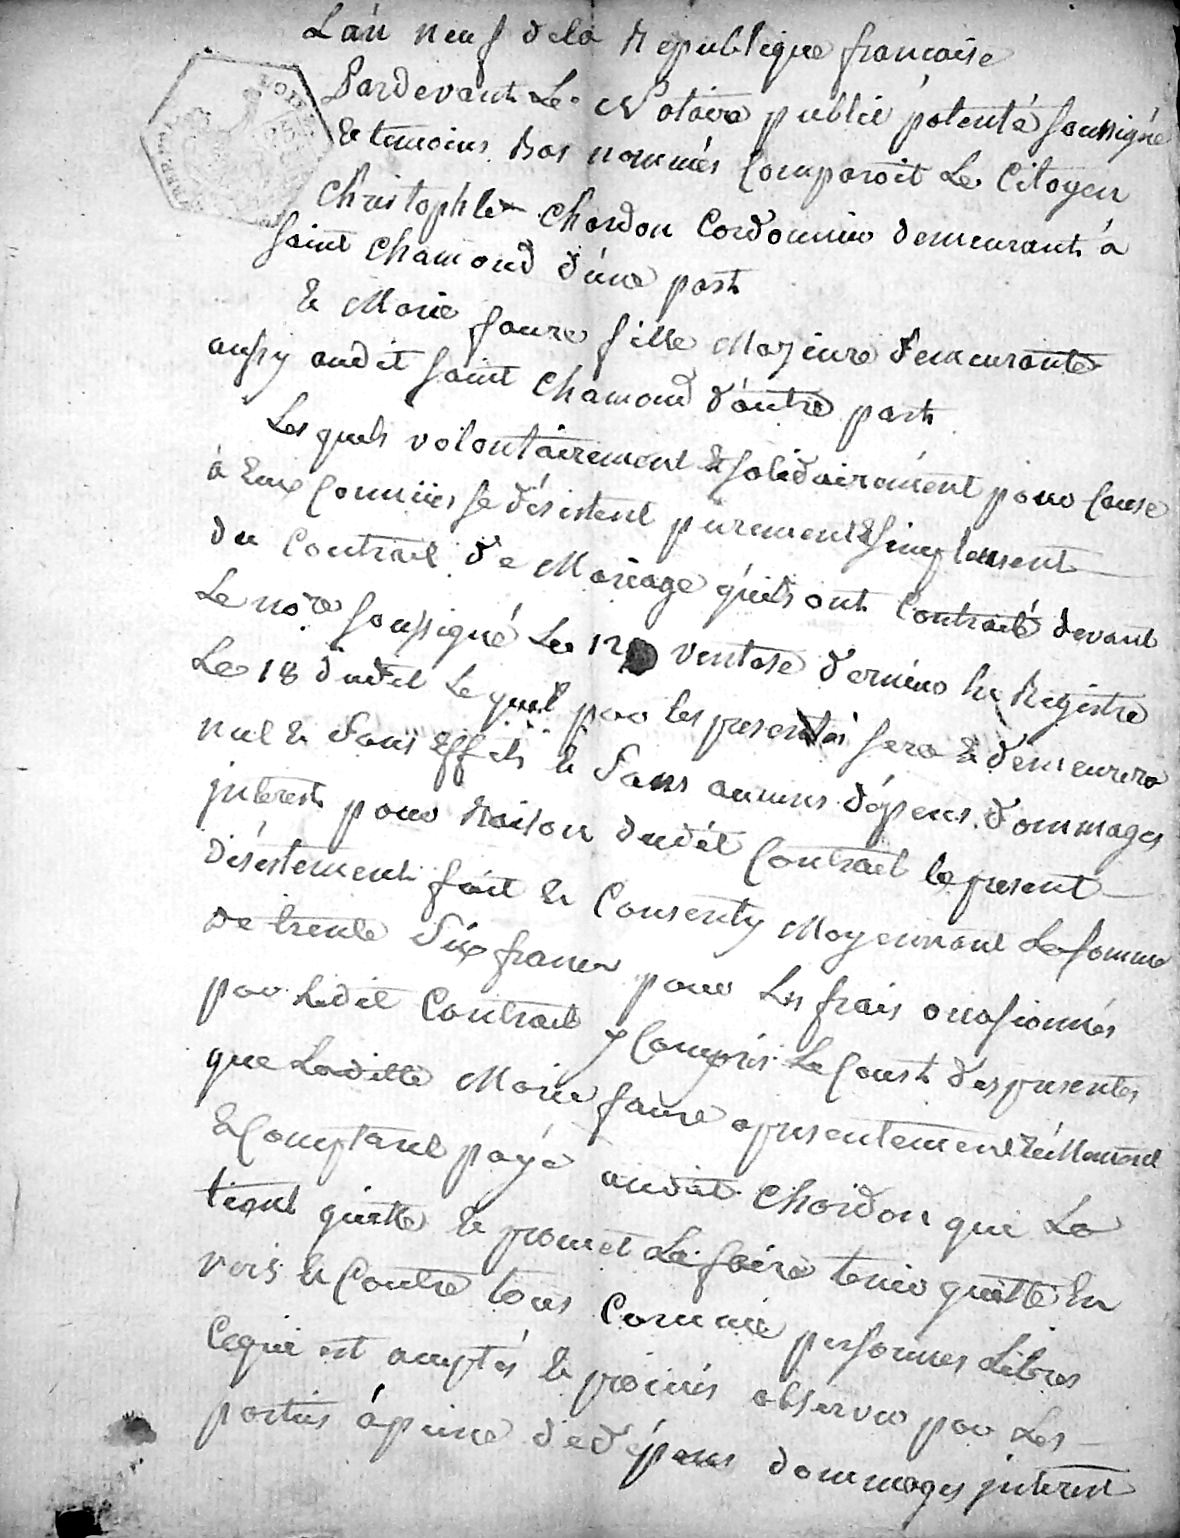 L'an neuf dela Republique francaise
Pardevant Le Notaire public patenté soussigné
& temoins Bas nommés Comparoit Le Citoyen
Christophle Chordon Cordonnier demeurant à
saint chamond d'une part
& Marie faure fille Majeure demeurante
aussy audit saint Chamond d'autre part
Les quels volontairement & solidairement pour Cause
à Eux Connües se désistent purement & simplement
du Contrat de Mariage qu'ils ont Contracté devant
Le no.re soussigné Le 12 ventose dernier En Registré
Le 18 dudit Le quel par les presentes sera & demeurera
nul & sans Effets & sans aucuns dépens dommages
jnterest pour Raison dudit Contrat le present
désistement fait & Consenty Moyennant La somme
de trente Six francs pour Les frais occasionnés
par Ledit Contrat y Compris Le Coust des presentes
que Laditte Marie faure a presentement & réellement
& Comptant payé audit Chordon qui La
tient quitte & promet La faire tenir quitte En
vers & Contre tous Comme personnes Libres
Ce qui est acceptés & promis observer par Les
parties à peine de dépens dommages jnterest
LOIRE